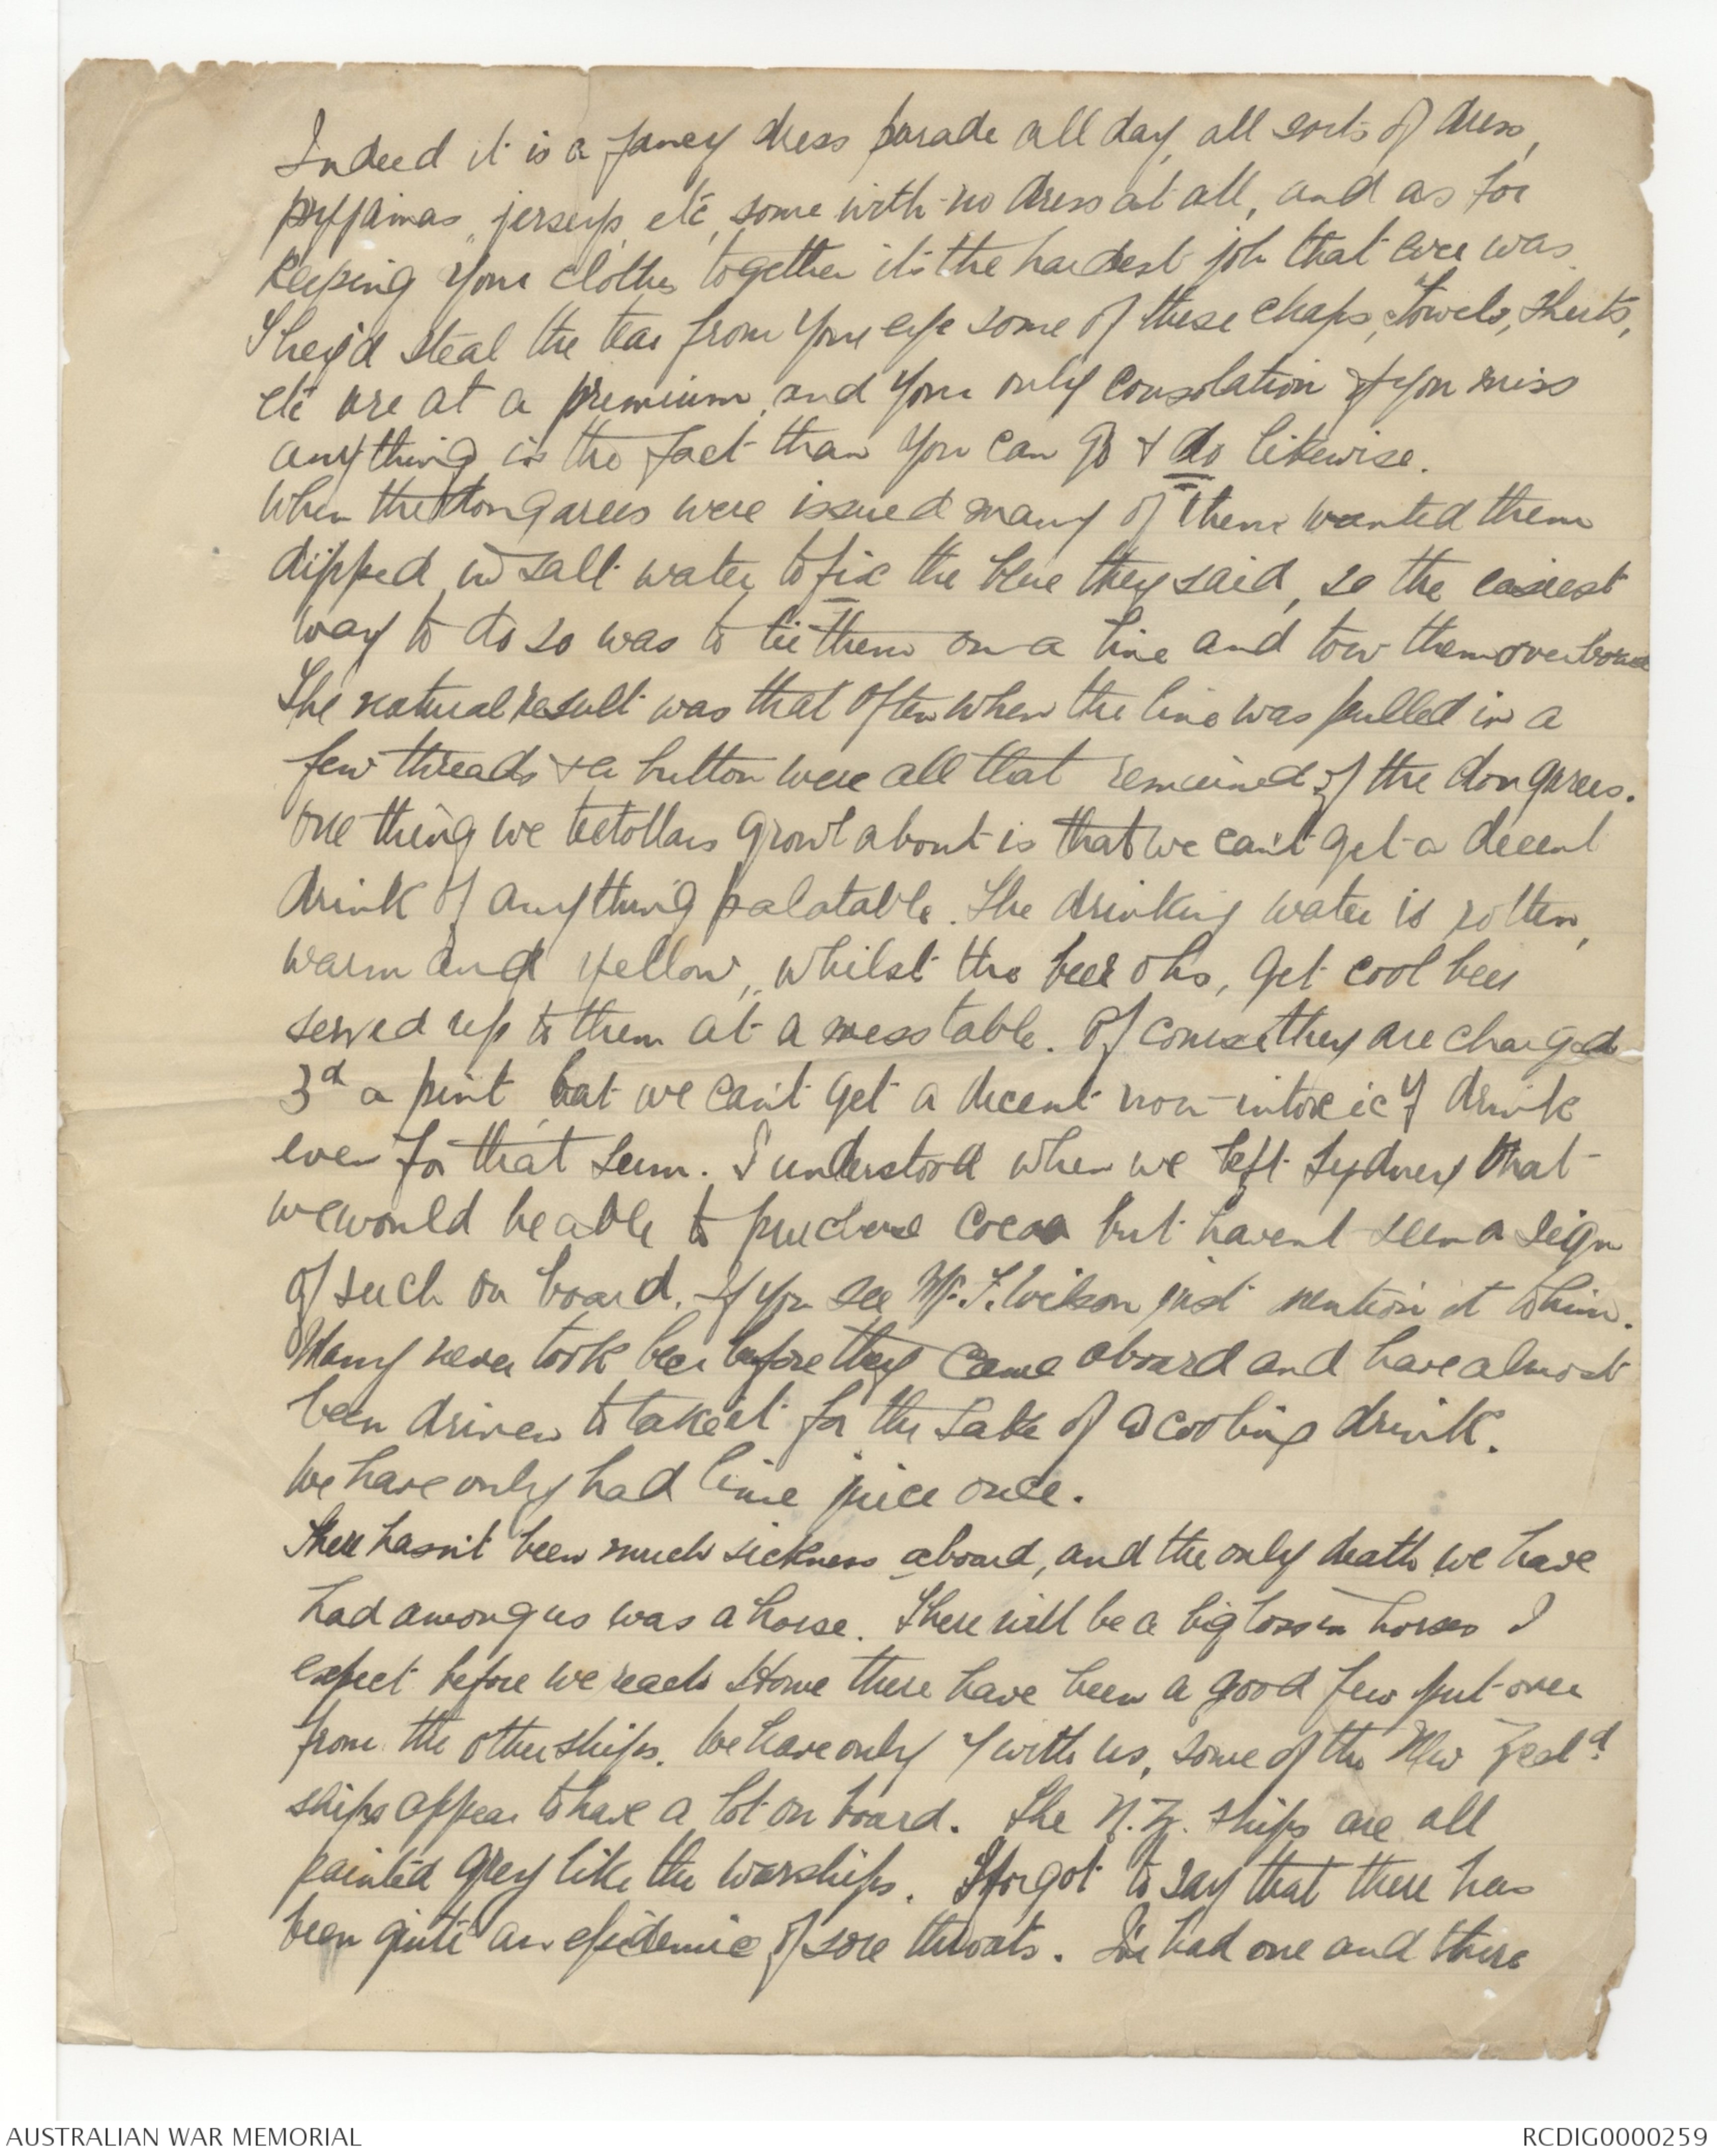 Indeed it is a fancy dress parade all day, all sorts of dress,
pyjjamas, jerseys, etc, some with no dress at all, and as for
keeping your clothes together it's the hardest job that ever was.
They'd steal the tear from your eye some of these chaps, towels, shirts,
etc are at a premium, and your only consolation if you miss
anything is the fact than you can go & do likewise.
When the dongarees were issued many of them wanted them
dipped in salt water to fix the blue they said, so the easiest
way to do so was to tie them on a line and tow them overboard
The natural result was that often when the line was pulled in a
few threads & a button were all that remained of the dongarees.
One thing we tetotlars growl about is that we can't get a decent
drink of anything palatable. The drinking water is rotten,
warm and yellow, whilst the beer ohs, get cool beer
served up to them at a mess table. Of course they are charged
3d a pint, but we can't get a decent non-intoxicg drink
even for that sum. I understood when we left Sydney that
we would be able to purchase cocoa but havent seen a sign
of such on board. If you see Mr. F. Wilson just mention it to him.
Many never took beer before they came aboard and have almost
been driven to take it for the sake of a cooling drink.
We have only had lime juice once.
There hasn't been much sickness aboard, and the only death we have
had among us was a horse. There will be a big loss in horses I
expect before we reach Home there have been a good few put over
from the other ships. We have only 7 with us, some of the New Zeald
ships appear to have a lot on board. The N.Z. ships are all
painted grey like the warships. I forgot to say that there has
been quite an epidemic of sore throats. I've had one and there
AUSTRALIAN WAR MEMORIAL
RCDIG0000259